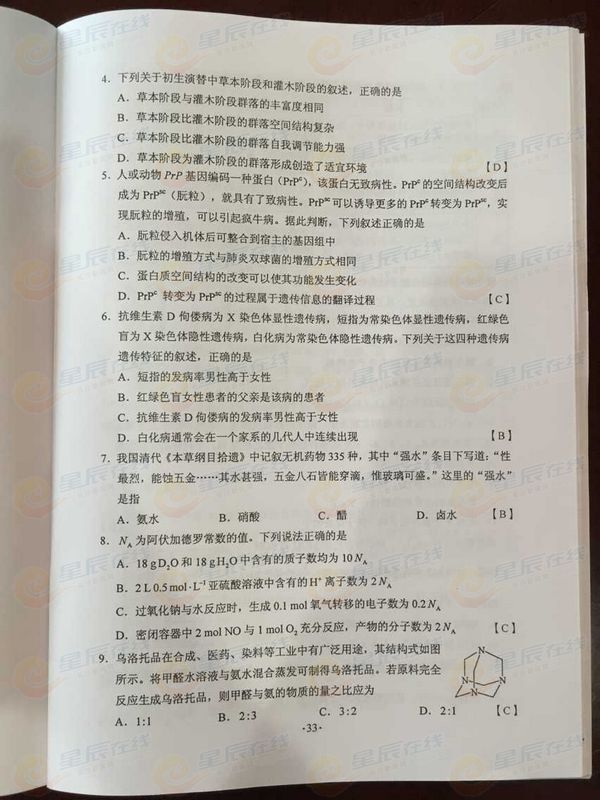 4. 下列关于初生演替中草本阶段和灌木阶段的叙述，正确的是
A. 草本阶段与灌木阶段群落的丰富度相同
B. 草本阶段比灌木阶段的群落空间结构复杂
C. 草本阶段比灌木阶段的群落自我调节能力强
D. 草本阶段为灌木阶段的群落形成创造了适宜环境 【D】
5. 人或动物 PrP 基因编码一种蛋白（PrPᶜ），该蛋白无致病性。PrPᶜ的空间结构改变后
成为 PrPˢᶜ（朊粒），就具有了致病性。PrPˢᶜ可以诱导更多的 PrPᶜ转变为 PrPˢᶜ，实
现朊粒的增殖，可以引起疯牛病。据此判断，下列叙述正确的是
A. 朊粒侵入机体后可整合到宿主的基因组中
B. 朊粒的增殖方式与肺炎双球菌的增殖方式相同
C. 蛋白质空间结构的改变可以使其功能发生变化
D. PrPᶜ 转变为 PrPˢᶜ的过程属于遗传信息的翻译过程 【C】
6. 抗维生素 D 佝偻病为 X 染色体显性遗传病，短指为常染色体显性遗传病，红绿色
盲为 X 染色体隐性遗传病，白化病为常染色体隐性遗传病。下列关于这四种遗传病
遗传特征的叙述，正确的是
A. 短指的发病率男性高于女性
B. 红绿色盲女性患者的父亲是该病的患者
C. 抗维生素 D 佝偻病的发病率男性高于女性
D. 白化病通常会在一个家系的几代人中连续出现 【B】
7. 我国清代《本草纲目拾遗》中记叙无机药物 335 种，其中“强水”条目下写道：“性
最烈，能蚀五金……其水甚强，五金八石皆能穿滴，惟玻璃可盛。”这里的“强水”
是指
A. 氨水 B. 硝酸 C. 醋 D. 卤水 【B】
8. N_A 为阿伏加德罗常数的值。下列说法正确的是
A. 18 g D₂O 和 18 g H₂O 中含有的质子数均为 10 N_A
B. 2 L 0.5 mol·L⁻¹ 亚硫酸溶液中含有的 H⁺ 离子数为 2 N_A
C. 过氧化钠与水反应时，生成 0.1 mol 氧气转移的电子数为 0.2 N_A
D. 密闭容器中 2 mol NO 与 1 mol O₂ 充分反应，产物的分子数为 2 N_A 【C】
9. 乌洛托品在合成、医药、染料等工业中有广泛用途，其结构式如图
所示。将甲醛水溶液与氨水混合蒸发可制得乌洛托品。若原料完全
反应生成乌洛托品，则甲醛与氨的物质的量之比应为
N
N
N
N
A. 1:1 B. 2:3 C. 3:2 D. 2:1 【C】
·33·
星辰在线